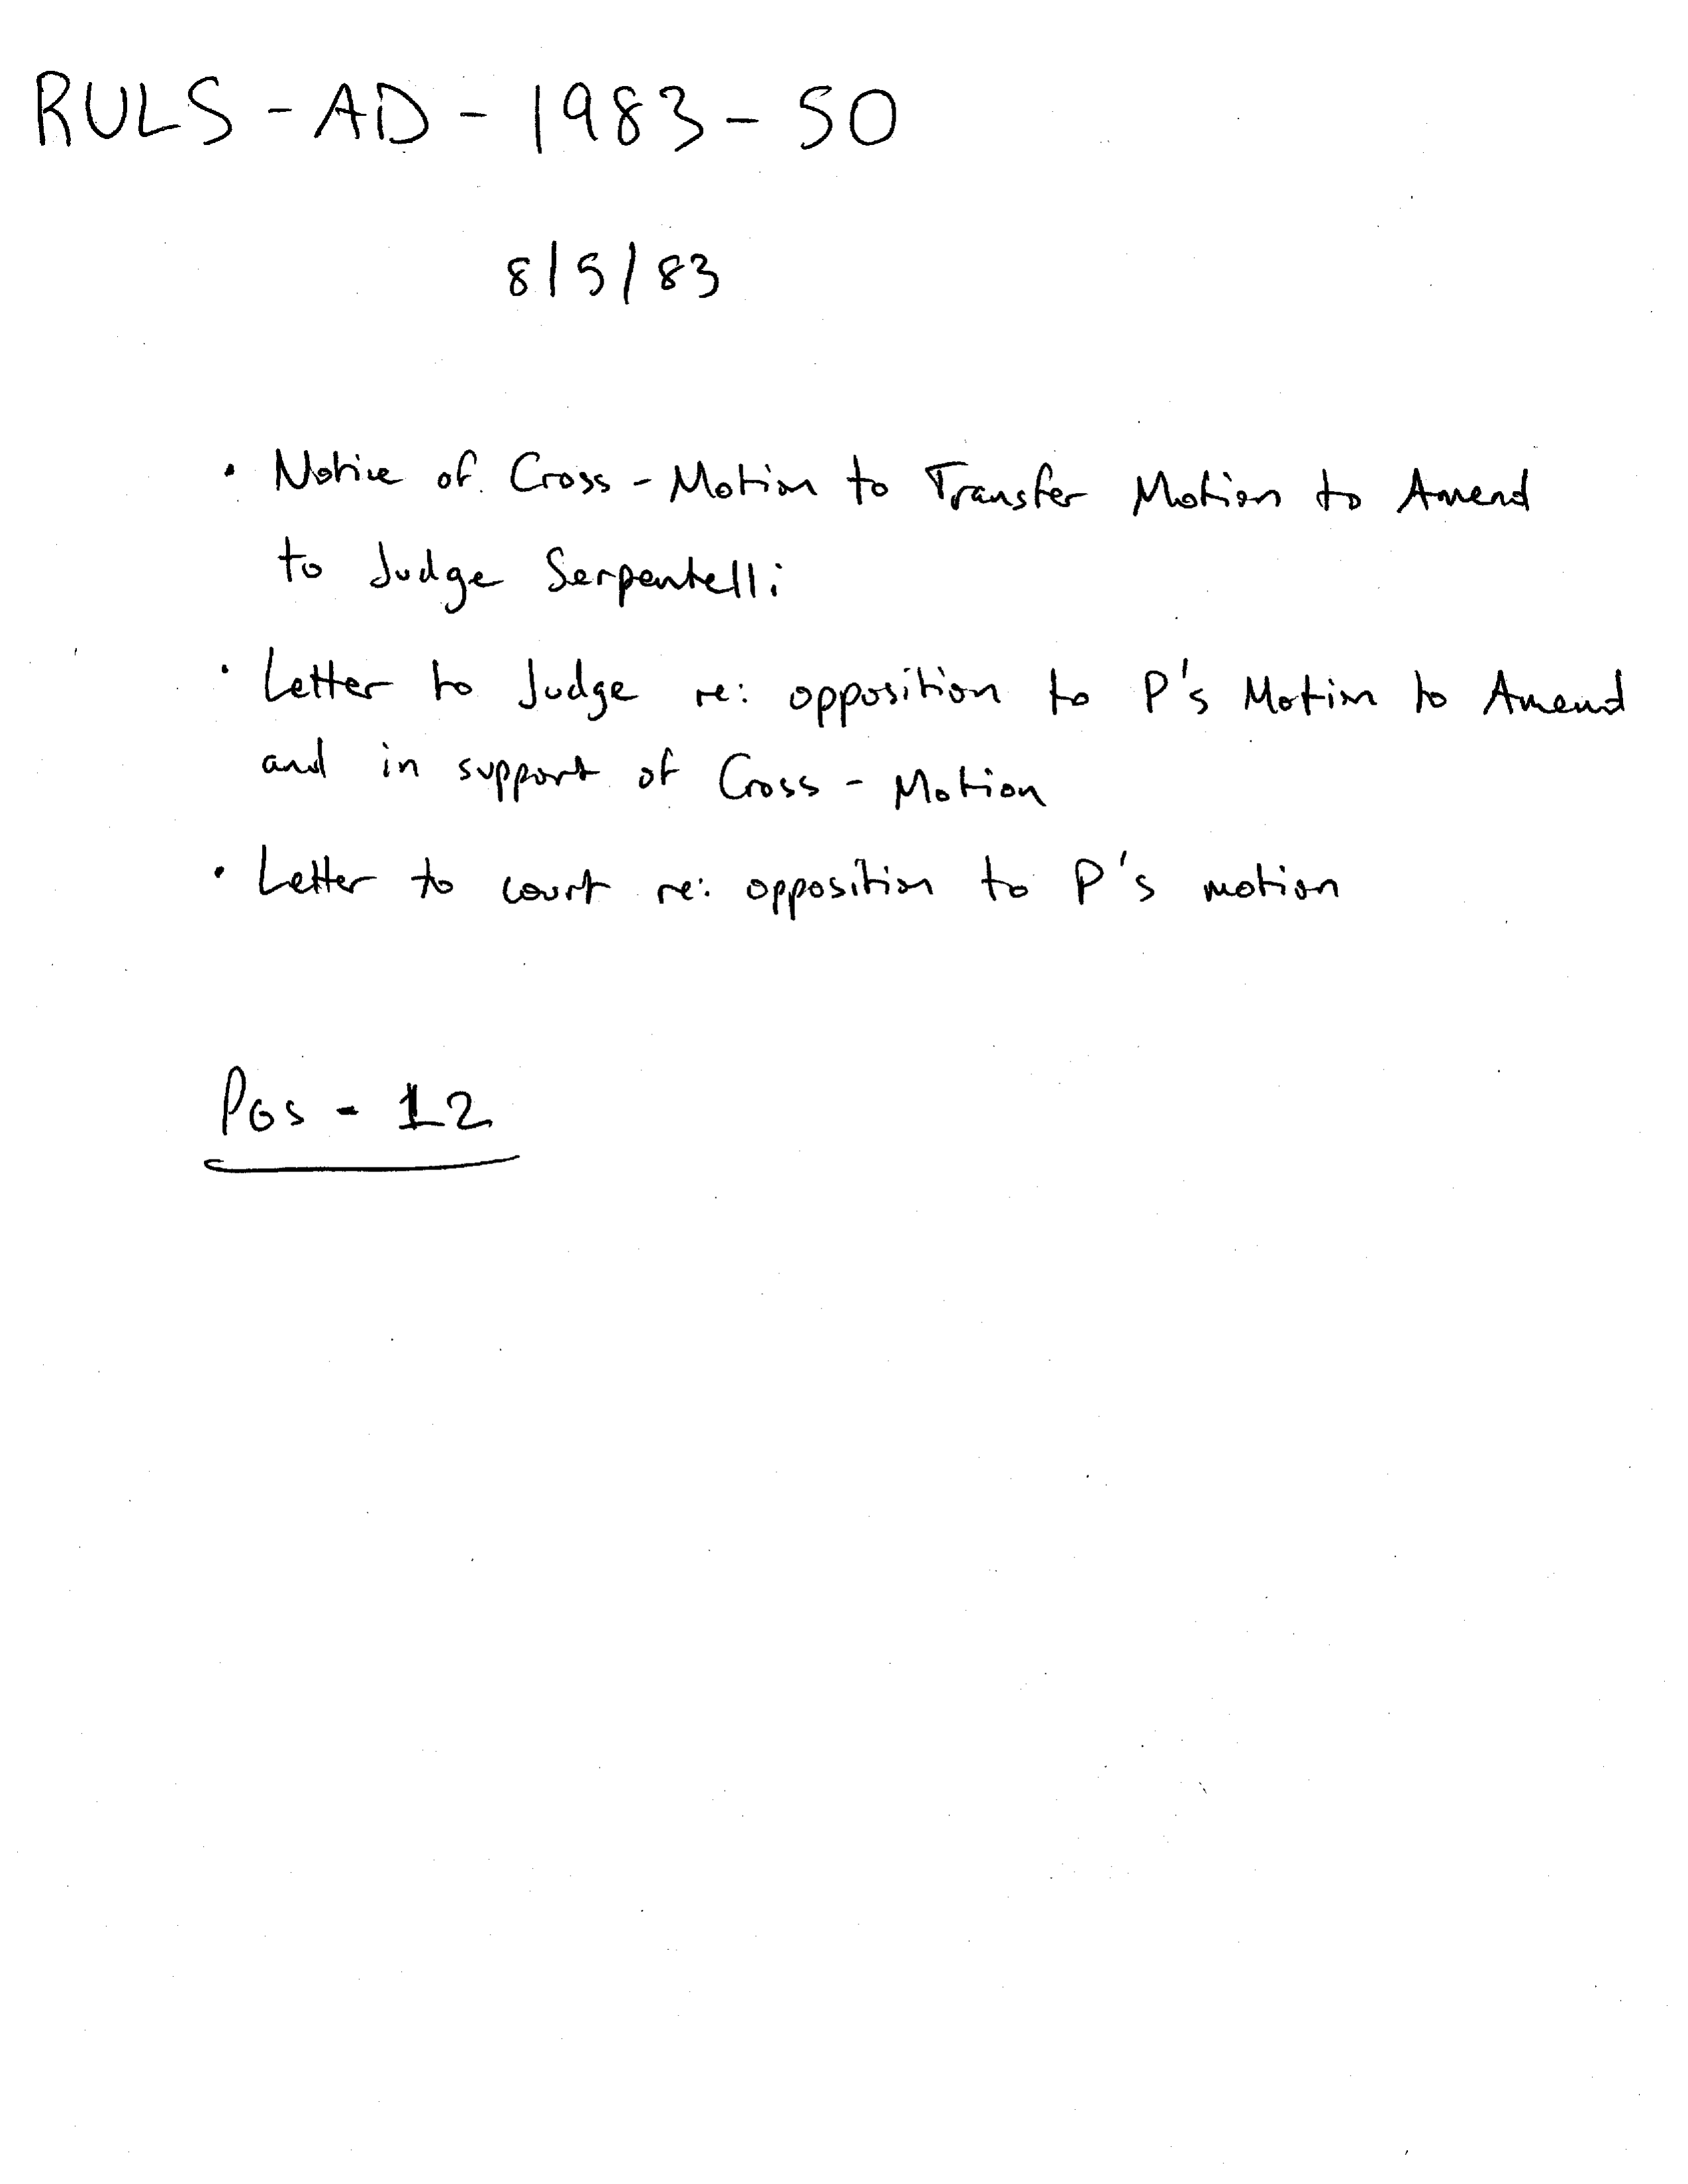 RULS - AD - 1983 - 50
8/5/83
• Notice of Cross-Motion to Transfer Motion to Amend
to Judge Serpentelli
• Letter to Judge re: opposition to P's Motion to Amend
and in support of Cross-Motion
• Letter to court re: opposition to P's motion
PGS - 12